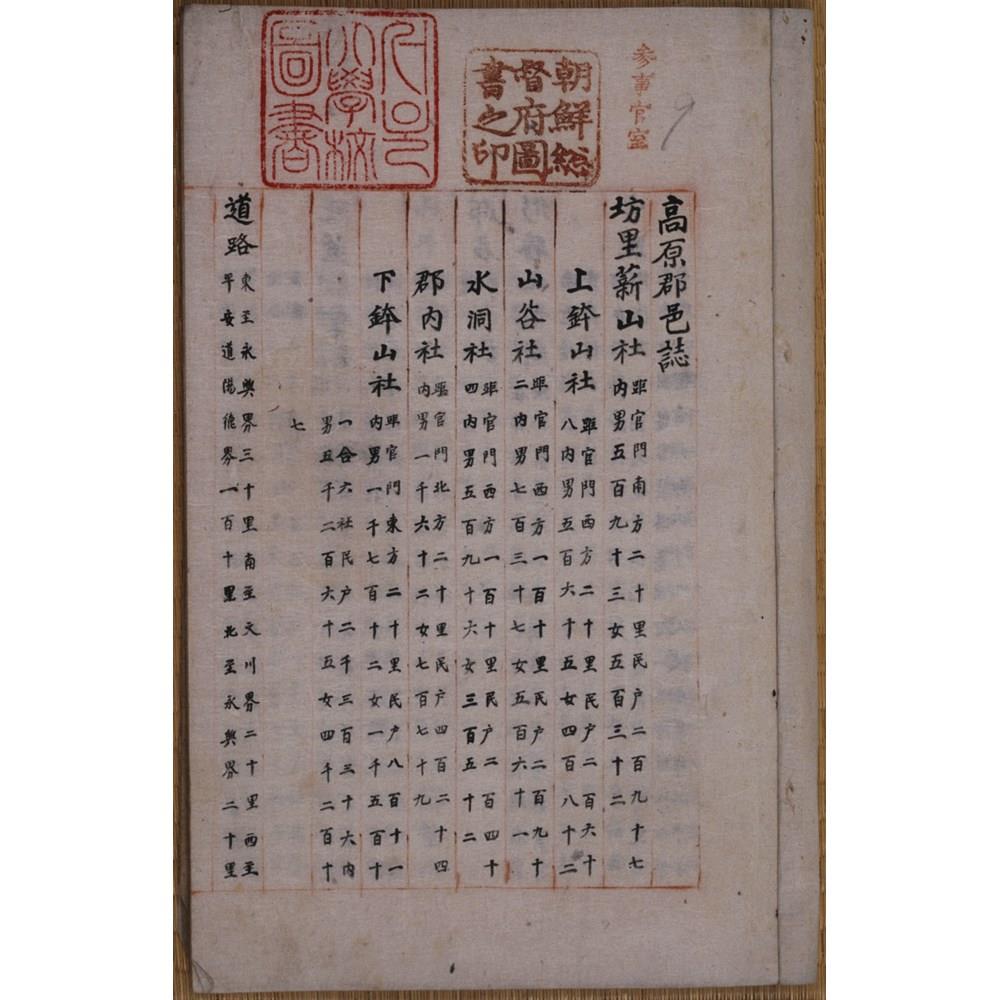 参事官室
9
朝鮮総
督府圖
書之印
서울
大學校
圖書
高原郡邑誌
坊里薪山社
距官門南方二十里民戶二百九十七
內男五百九十三女五百三十二
上鉢山社
距官門西方二十里民戶二百六十
八內男五百六十五女四百八十二
山谷社
距官門西方一百十里民戶二百九十
二內男七百三十七女五百六十一
水洞社
距官門西方一百十里民戶二百四十
四內男五百九十六女三百五十二
郡內社
距官門北方二十里民戶四百二十四
內男一千六十二女七百七十九
下鉢山社
距官門東方二十里民戶八百十一
內男一千七百十二女一千五百十
一合六社民戶二千三百三十六內
男五千二百六十五女四千二百十
七
道路
東至永興界三十里南至文川界二十里西至
平安道陽德界一百十里北至永興界二十里